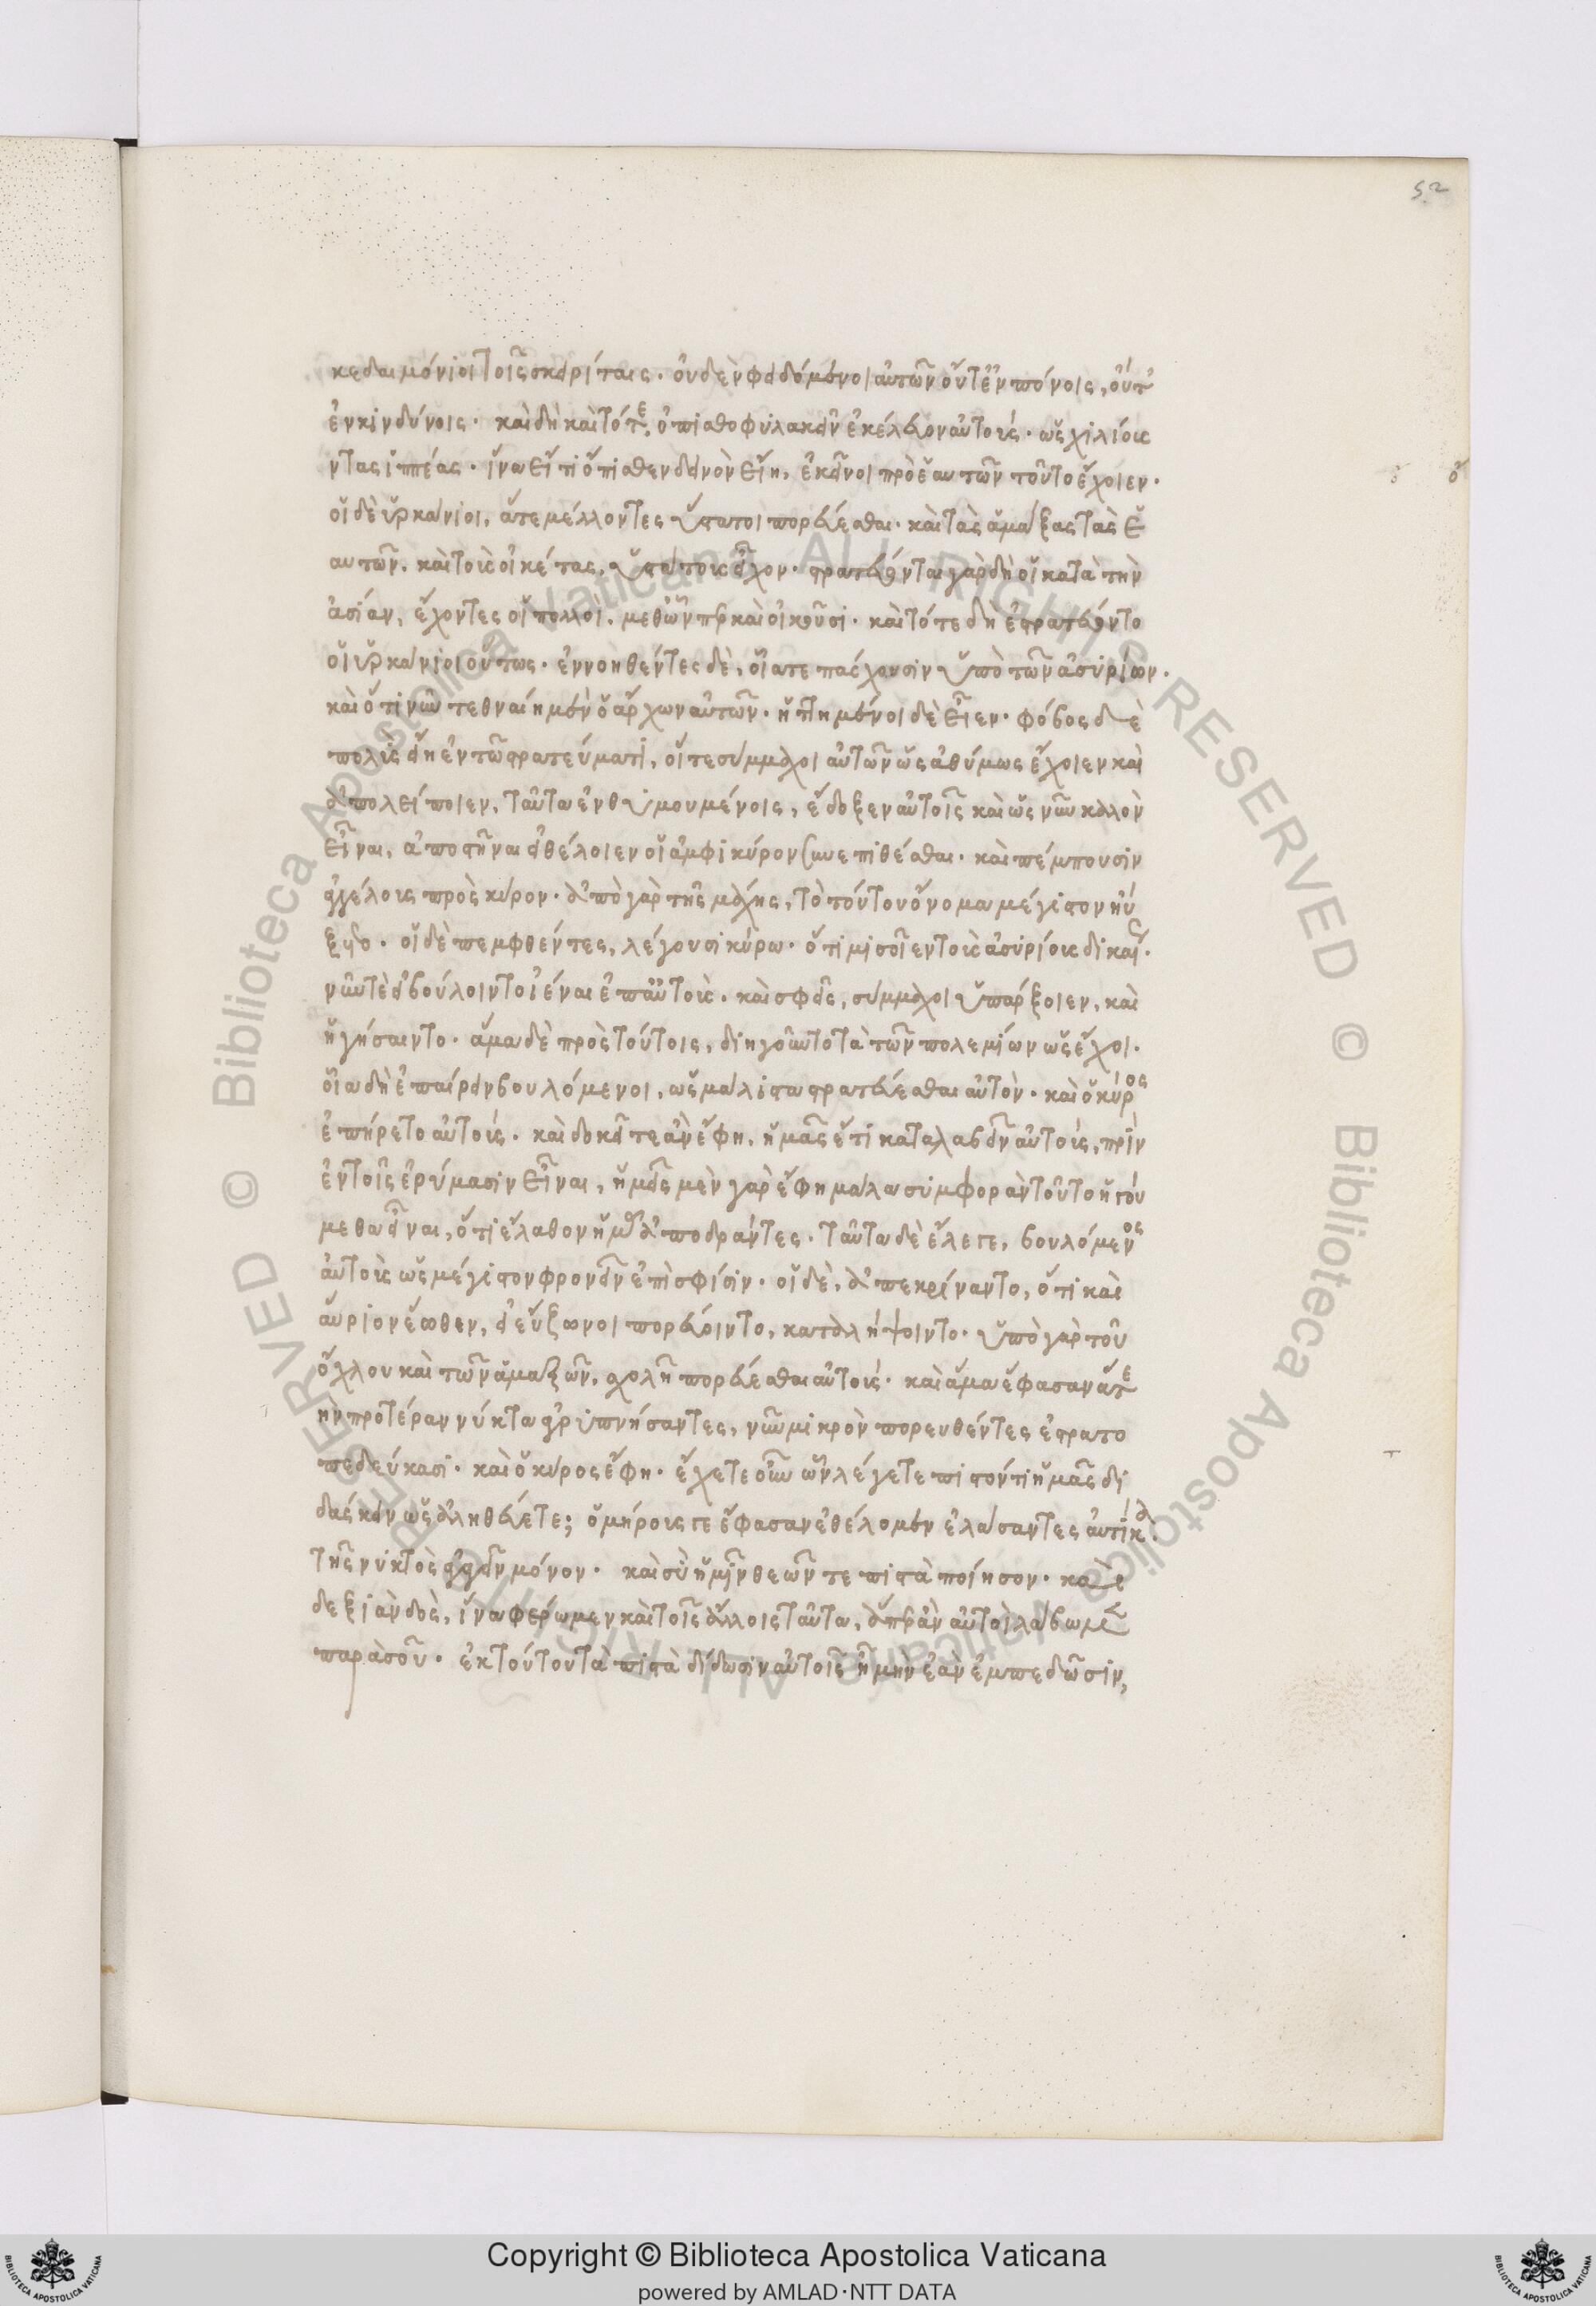 52
κεδαιμόνιοι τοῖς σκιρίταις· οὐδὲν φειδόμενοι αὐτῶν οὔτ' ἐν πόνοις, οὔτ'
ἐν κινδύνοις· καὶ δὴ καὶ τότε, ὀπισθοφυλακεῖν ἐκέλευον αὐτοὺς· ὡς χιλίους
ντας ἱππέας· ἵνα εἴ τι ὄπισθεν δεινὸν εἴη, ἐκεῖνοι πρὸ ἑαυτῶν τοῦτο ἔχοιεν·
οἱ δὲ ὑρκάνιοι, ἅτε μέλλοντες ὕστατοι πορεύεσθαι· καὶ τὰς ἁμάξας τὰς ἑ
αυτῶν, καὶ τοὺς οἰκέτας, ὑστάτους εἶχον· στρατεύονται γὰρ δὴ οἱ κατὰ τὴν
ἀσίαν, ἔχοντες οἱ πολλοὶ, μεθ' ὧνπερ καὶ οἰκοῦσι· καὶ τότε δὴ ἐστρατεύοντο
οἱ ὑρκάνιοι οὕτως· ἐννοηθέντες δὲ, οἷά τε πάσχουσιν ὑπὸ τῶν ἀσυρίων·
καὶ ὅτι νῦν τεθναίη μὲν ὁ ἄρχων αὐτῶν· ἡττημένοι δὲ εἶεν· φόβος δὲ
πολὺς εἴη ἐν τῶ στρατεύματι, οἵ τε σύμμαχοι αὐτῶν ὡς ἀθύμως ἔχοιεν καὶ
ἀπολείποιεν, ταῦτα ἐνθυμουμένοις, ἔδοξεν αὐτοῖς καὶ ὡς νῦν καλὸν
εἶναι, ἀποστῆναι εἰ θέλοιεν οἱ ἀμφὶ κύρον συνεπιθέσθαι· καὶ πέμπουσιν
ἀγγέλους πρὸς κύρον· ἀπὸ γὰρ τῆς μάχης, τὸ τούτου ὄνομα μέγιστον ηὔ
ξητο· οἱ δὲ πεμφθέντες, λέγουσι κύρω· ὅτι μισοῖεν τοὺς ἀσυρίους δικαί·
νῦν τὲ εἰ βούλοιντο ἰέναι ἐπ' αὐτοὺς· καὶ σφεῖς, σύμμαχοι ὑπάρξοιεν, καὶ
ἡγήσαιντο· ἅμα δὲ πρὸς τούτοις, διηγοῦντο τὰ τῶν πολεμίων ὡς ἔχοι·
οἷα δὴ ἐπαίρειν βουλόμενοι, ὡς μάλιστα στρατεύεσθαι αὐτὸν· καὶ ὁ κύρος
ἐπήρετο αὐτοὺς· καὶ δοκεῖτε ἂν ἔφη, ἡμᾶς ἔτι καταλαβεῖν αὐτοὺς, πρὶν
ἐν τοῖς ἐρύμασιν εἶναι, ἡμεῖς μὲν γὰρ ἔφη μάλα συμφορὰν τοῦτο ἡγού
μεθα εἶναι, ὅτι ἔλαθον ἡμᾶς ἀποδράντες· ταῦτα δὲ ἔλεγε, βουλόμενος
αὐτοὺς ὡς μέγιστον φρονεῖν ἐπὶ σφίσιν· οἱ δὲ, ἀπεκρίναντο, ὅτι καὶ
αὔριον ἕωθεν, εἰ εὔζωνοι πορεύοιντο, καταλήψοιντο· ὑπὸ γὰρ τοῦ
ὄχλου καὶ τῶν ἁμαξῶν, σχολῆ πορεύεσθαι αὐτοὺς· καὶ ἅμα ἔφασαν ἅτε
ὴν προτέραν νύκτα ἀγρυπνήσαντες, νῦν μικρὸν πορευθέντες ἐστρατο
πεδεύκασι· καὶ ὁ κύρος ἔφη· ἔχετε οὖν ὧν λέγετε πιστόν τι ἡμᾶς δι
δάσκειν ὡς ἀληθεύετε; ὁμήρους γε ἔφασαν ἐθέλομεν ἐλάσαντες αὐτίκα
τῆς νυκτὸς ἀγαγεῖν μόνον· καὶ σὺ ἡμῖν θεῶν τε πιστὰ ποίησον· καὶ
δεξιὰν δὸς, ἵνα φέρωμεν καὶ τοῖς ἄλλοις ταῦτα, ἅπερ ἂν αὐτοὶ λάβωμεν
παρὰ σοῦ· ἐκ τούτου τὰ πιστὰ δίδωσιν αὐτοῖς ἦ μὴν ἐὰν ἐμπεδῶσιν,
Copyright © Biblioteca Apostolica Vaticana
powered by AMLAD·NTT DATA